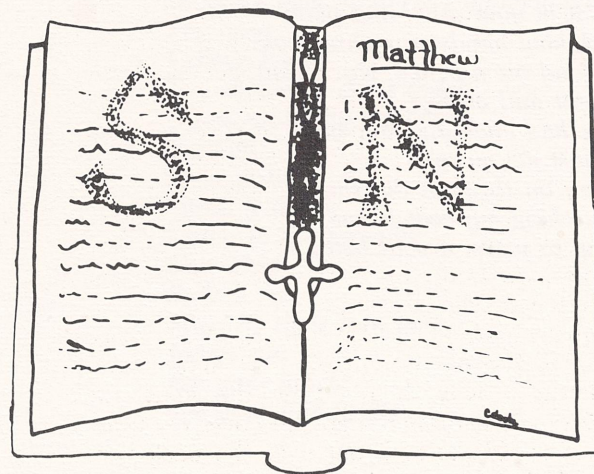 Matthew
S I N
1